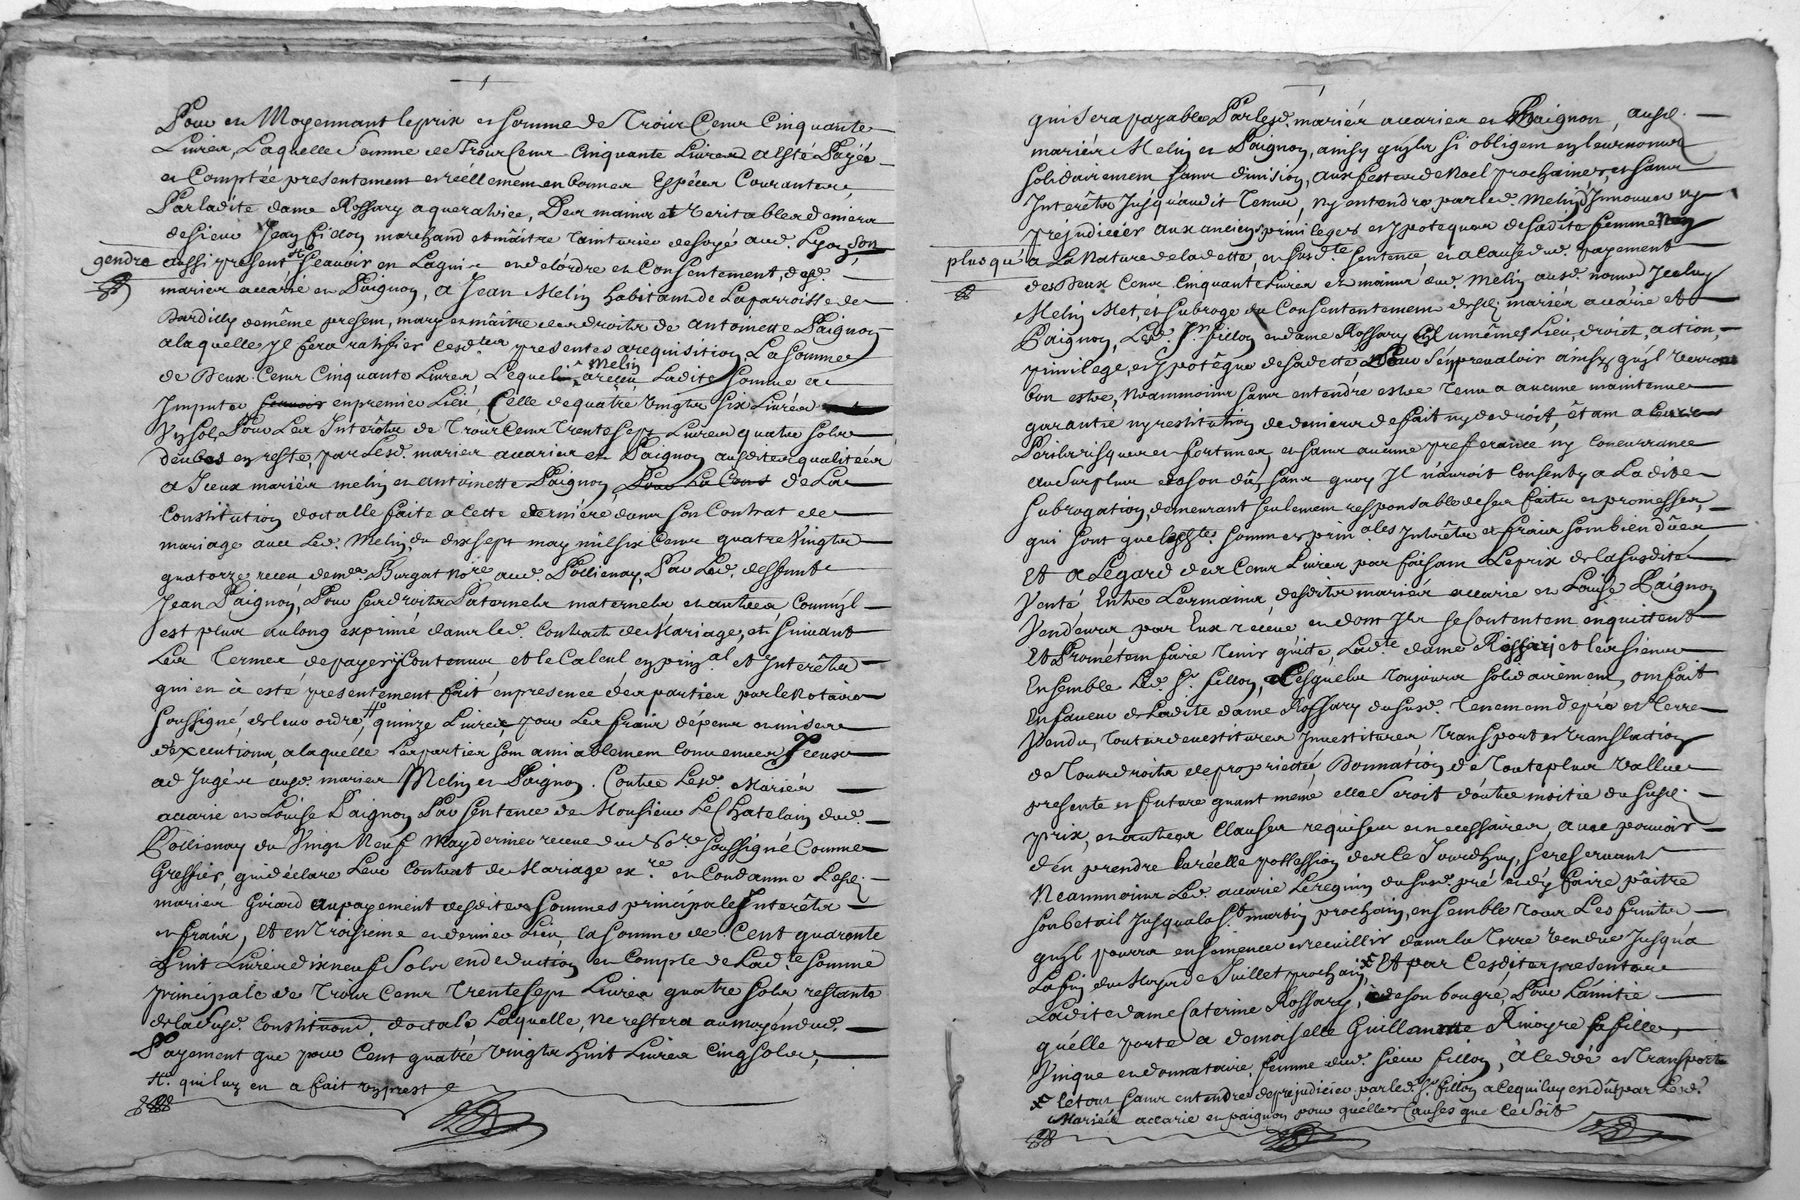 Pour et Moyennant le prix et somme de Trois Cent Cinquante
Livres, Laquelle Somme de Trois Cent Cinquante Livres a Esté Payée
et Comptée presentement et réellement en bonnes Espèces Courantes
Par ladite dame Rossary aqueratrice, Des mains et veritables deniers
de sieur Jean fillon marchand et maitre Tainturier de soye aud. Lyon, son
gendre aussi présent, sçavoir en Laquise et de l'ordre et Consentement, desd.
mariés accarie et Paignon, a Jean Melin habitant de La parroisse de
Dardilly de même present, mary et maitre des droits de antoinette Paignon
a laquelle yl fera ratifier lesd.tes presentes a requisition La Somme
de Deux Cent Cinquante Livres Lequel Melin a receu Ladite Somme et
Imputée en premier Lieu, Celle de quatre vingts six Livres
un sol, Pour Les Interêts de Trois Cent Trente Sept Livres quatre sols
deubes en reste, par Lesd. mariés accarie et Paignon ausdites qualitées
a Iceux mariés melin et antoinette Paignon de La
Constitution dotalle faite a Cette derniére dans son Contrat de
mariage avec Led. Melin, du dix sept may mil six Cent quatre Vingts
quatorze receu de me. Burgat no.re aud. Pollienay, Par Led. deffunt
Jean Paignon, Pour ses droits Paternels maternels et autres Comm'yl
est plus au long exprimé dans led. Contract de Mariage, et suivant
Les Termes de payes y Contenus et le Calcul en prin.al et Interêts
qui en à esté presentement fait en presence des parties par le Notaire
soussigné, de leur ordre, quinze Livres, pour Les frais dépens et mises
d'exécutions, a laquelle Les parties sont amiablement Convenues Iceux
ad Jugés ausd. mariés Melin et Paignon. Contre Lesd. Mariés
accarie et Loüise Paignon Par sentence de Monsieur Le Chatelain dud.
Pollienay du Vingt Neuf May dernier receue du No.re soussigné Comme
Greffier, qui déclare Leur Contrat de Mariage ex.re et Condamne Lesd.
mariés Girard au payement desdites sommes principales Interêts
et frais, Et en Troisieme et dernier Lieu, la somme de Cent quarante
huit Livres dix neuf Sols en deduction et Compte de Lad.te somme
principale de Trois Cent Trente Sept Livres quatre sols restants
de la susd. Constitution dotale Laquelle, Ne restera au moyen dud.
Payement que pour Cent quatre vingts huit Livres Cinq sols,
qui luy en a fait ny prest
qui sera payable Par lesd. mariés accarie et Paignon, ausd.
mariés Melin et Paignon, ainsy qu'yls si obligent en leurs noms
solidairement sans division, aux festes de Noel prochaines, et sans
Interêts Jusqu'audit Temps, N'y entendre par led. Melin Innover ny
préjudicier aux anciens privileges et ypoteques de sadite femme
plus qu' a La Nature de la dette, et susd.te sentence et a cause du d. payement
des Deux Cent Cinquante Livres et mains dud. Melin ausd. noms Iceluy
Melin Met, et subroge du Consentement desd. mariés accarie et
Paignon, Led. Sr. fillon et dame Rossary En mêmes Lieu, droict, action,
privilege, et ypotêque de sadette Pour s'en prevaloir ainsy qu'yl verra
bon estre, Neammoins sans entendre estre Tenu a aucune maintenue
garantie ny restitution de deniers de fait ny de droit, êtant a leurs
Perils risques et fortunes, et sans aucune preferance ny Concurrance
au surplus de son dû, sans quoy Il n'auroit Consenty a La dite
subrogation, demeurant seulement responsable de ses faits et promesses,
qui sont que les.tes sommes prin.ales Interêts et frais sont bien dûes
Et a Légard des Cent Livres par faisant Le prix de la susdite
Vente, Entre Les mains, desdits mariés accarie et Loüise Paignon
Vendeurs par Eux receue et dont Ils se Contentent en quittent
Et Prométent faire Tenir quite, Lad.te dame Rossary et les siens
Ensemble Led. Sr. fillon, Lesquels Toujours solidairement, ont fait
En faveur de Ladite dame Rossary du susd. Tenement de pré et Terre
Vendu, Toutes devestitures Investitures, Transports et Translations
de Tous droits de proprietté, Donnation de Toute plus vallue
presente et future quant même elle seroit d'outre moitié du susd.
prix, et autres Clauses requises et necessaires, avec pouvoir
d'en prendre la réelle possession dez le Jourd'huy, se reservant
Neammoins Led. accarie Le reguin du susd. pré et d'y faire pâitre
son betail Jusqu'a la St martin prochain, ensemble Tous Les fruits
qu'yl pourra ensemencer et recuillir dans la Terre vendue Jusqu'a
La fin du Moys de Juillet prochain, Et par Cesdites presentes
Ladite dame Caterine Rossary, de son bon gre, Pour L'amitie
qu'elle porte a demoiselle Guillaumette Rinoyre sa fille,
Unique et donnataire, femme dud. sieur fillon, à cedé et Transporté
le tout sans entendre dépréjudicier par led. Sr. fillon a ce qui luy en dût par Lesd.
Mariés accarie et paignon pour quélles Causes que ce soit